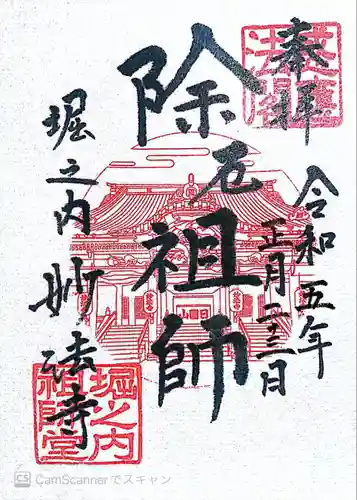 奉拝
令和五年
正月二三日
除厄
祖師
日圓山
堀之内
妙法寺
堀之内
祖師堂
CS CamScannerでスキャン